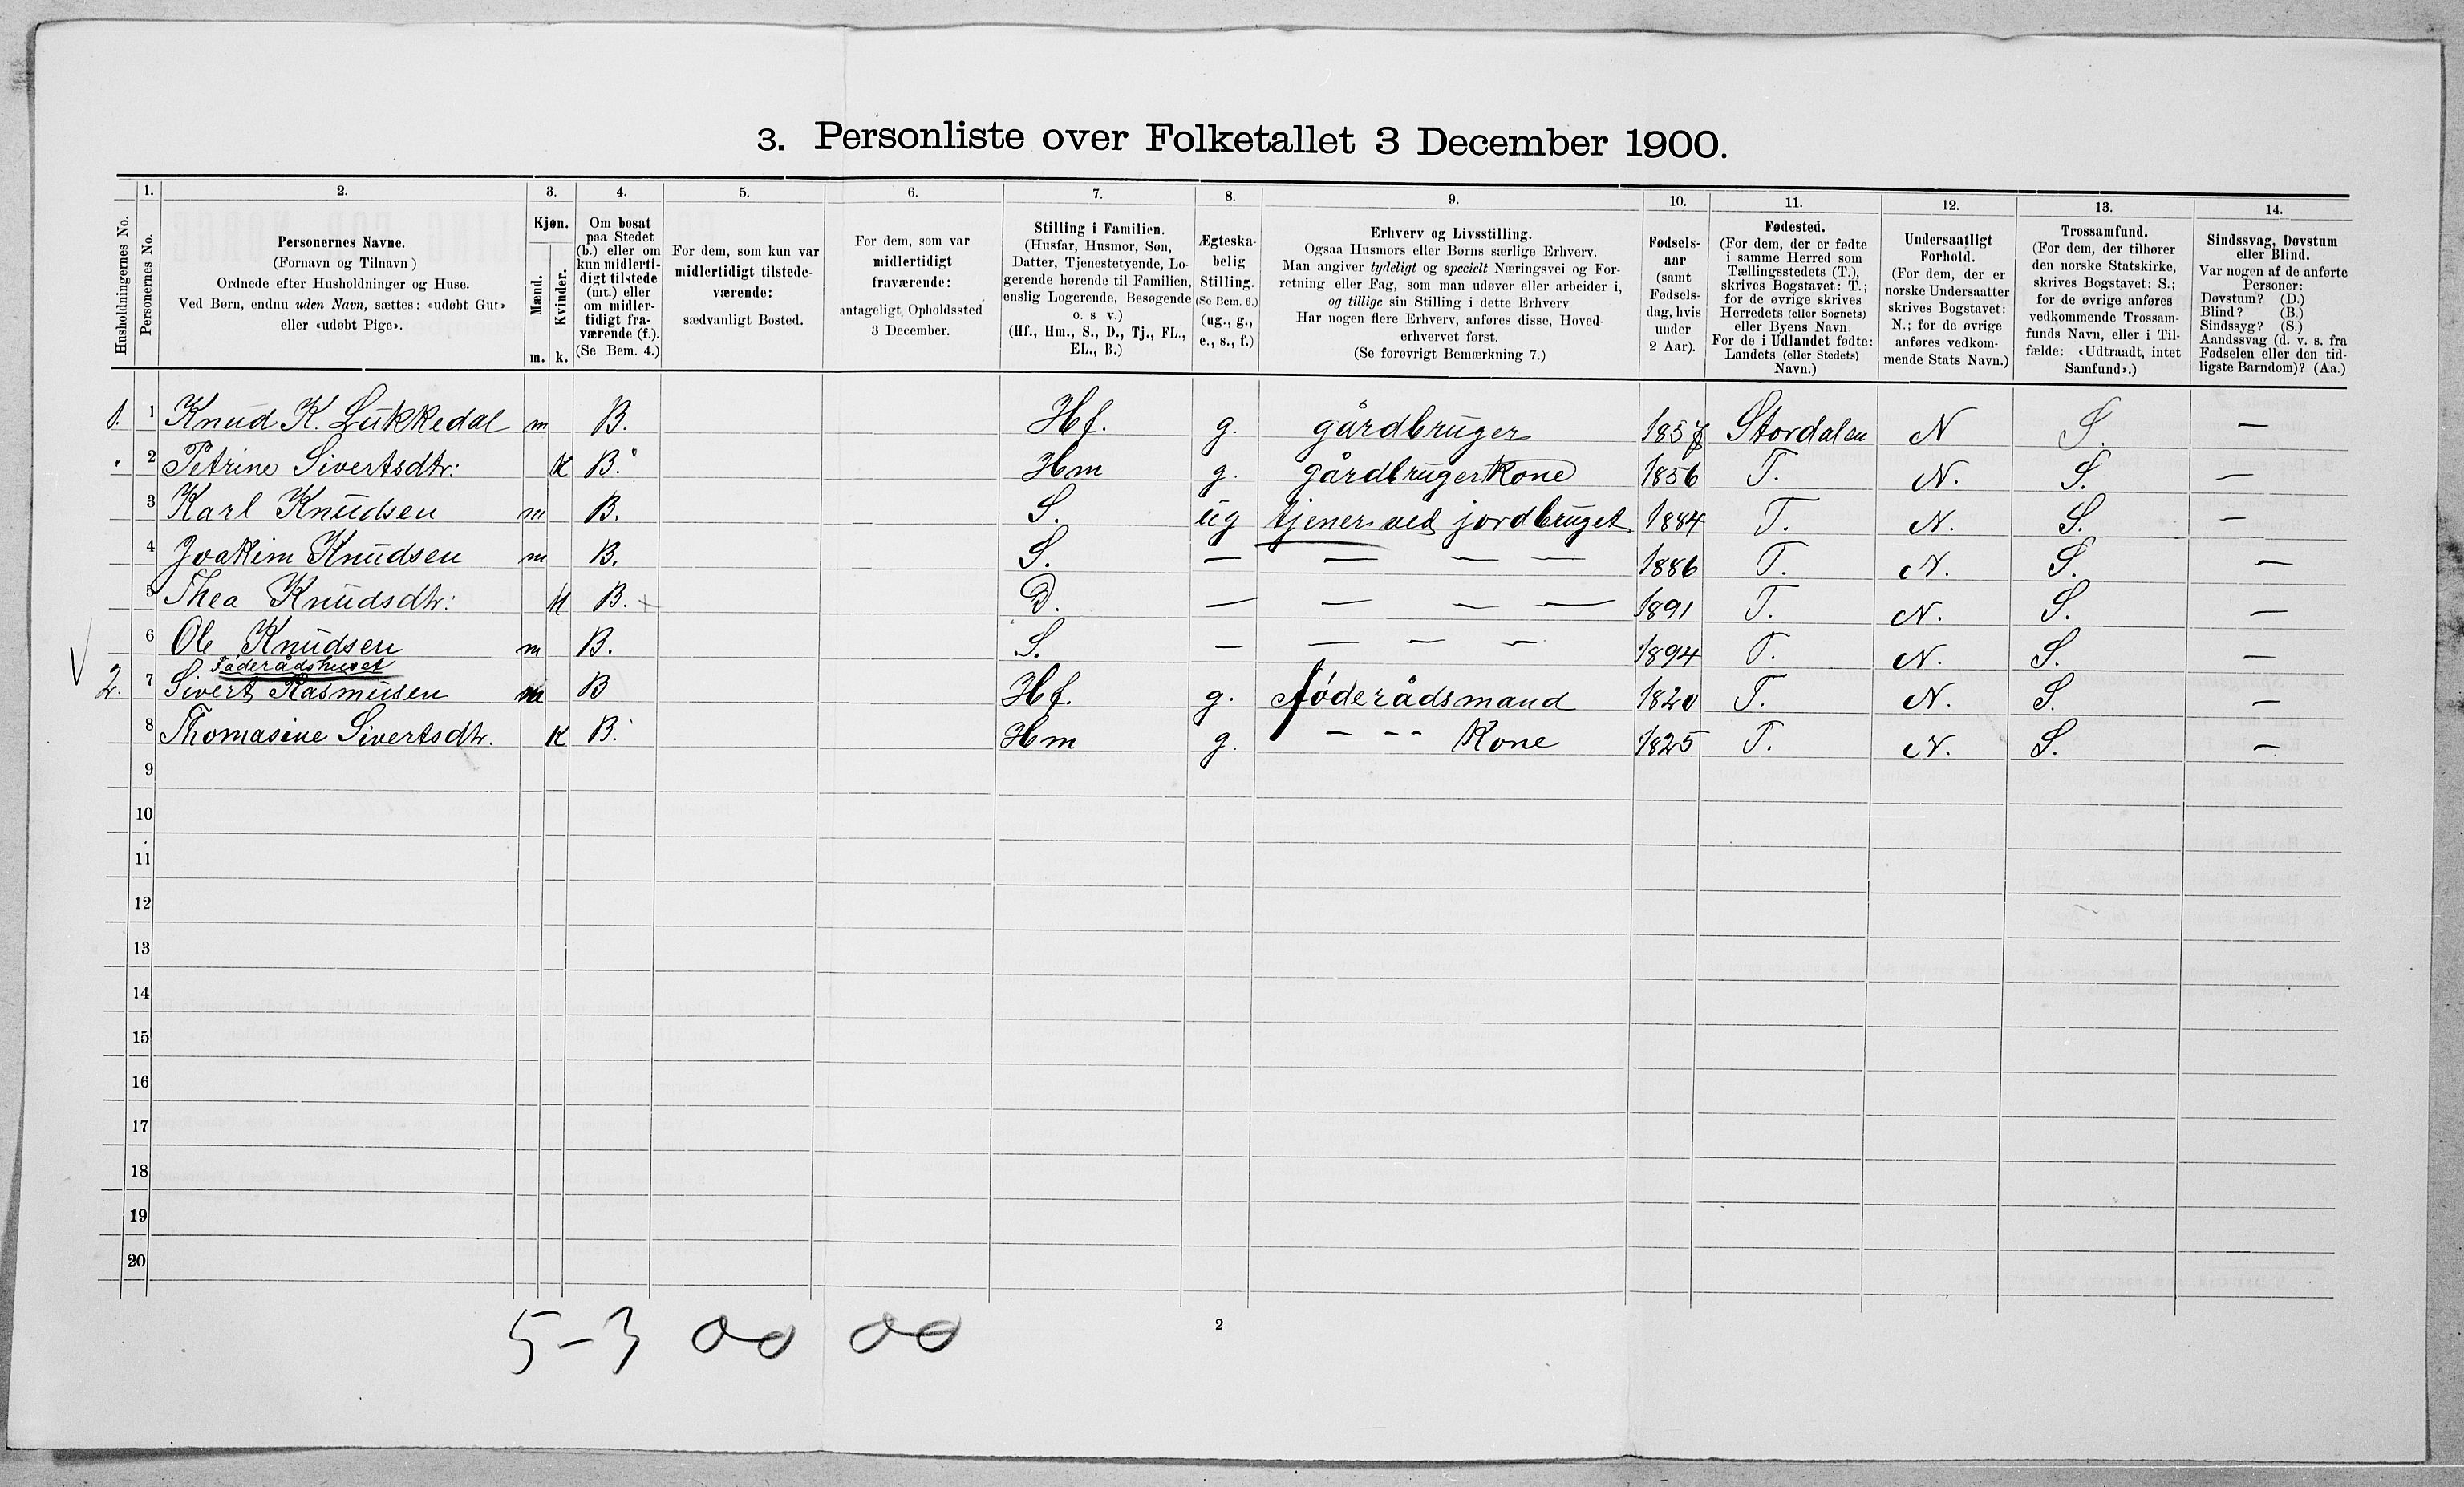 3. Personliste over Folketallet 3 December 1900.
1. 2. 3. 4. 5. 6. 7. 8. 9. 10. 11. 12. 13. 14.
Husholdningernes No.
Personernes No.
Personernes Navne.
(Fornavn og Tilnavn)
Ordnede efter Husholdninger og Huse.
Ved Børn, endnu uden Navn, sættes: «udøbt Gut»
eller «udøbt Pige».
Kjøn.
Mænd.
Kvinder.
m. k.
Om bosat
paa Stedet
(b.) eller om
kun midlerti-
digt tilstede
(mt.) eller
om midler-
tidigt fra-
værende (f.).
(Se Bem. 4.)
For dem, som kun var
midlertidigt tilstede-
værende:
sædvanligt Bosted.
For dem, som var
midlertidigt
fraværende:
antageligt Opholdssted
3 December.
Stilling i Familien.
(Husfar, Husmor, Søn,
Datter, Tjenestetyende, Lo-
gerende hørende til Familien,
enslig Logerende, Besøgende
o. s v.)
(Hf., Hm., S., D., Tj., FL.,
EL., B.)
Ægteska-
belig
Stilling.
(Se Bem. 6.)
(ug., g.,
e., s., f.)
Erhverv og Livsstilling.
Ogsaa Husmors eller Børns særlige Erhverv.
Man angiver tydeligt og specielt Næringsvei og For-
retning eller Fag, som man udøver eller arbeider i,
og tillige sin Stilling i dette Erhverv
Har nogen flere Erhverv, anføres disse, Hoved-
erhvervet først.
(Se forøvrigt Bemærkning 7.)
Fødsels-
aar
(samt
Fødsels-
dag, hvis
under
2 Aar).
Fødested.
(For dem, der er fødte
i samme Herred som
Tællingsstedets (T.),
skrives Bogstavet: T.;
for de øvrige skrives
Herredets (eller Sognets)
eller Byens Navn
For de i Udlandet fødte:
Landets (eller Stedets)
Navn.)
Undersaatligt
Forhold.
(For dem, der er
norske Undersaatter
skrives Bogstavet:
N.; for de øvrige
anføres vedkom-
mende Stats Navn.)
Trossamfund.
(For dem, der tilhører
den norske Statskirke,
skrives Bogstavet: S.;
for de øvrige anføres
vedkommende Trossam-
funds Navn, eller i Til-
fælde: «Udtraadt, intet
Samfund».)
Sindssvag, Døvstum
eller Blind.
Var nogen af de anførte
Personer:
Døvstum? (D.)
Blind? (B.)
Sindssyg? (S.)
Aandssvag (d. v. s. fra
Fødselen eller den tid-
ligste Barndom)? (Aa.)
1. 1 Knud K. Lukkedal m B. Hf. g. gårdbruger 1857 Stordalen N S. —
2 Petrine Sivertsdtr: K B. Hm g. gårdbrugerkone 1856 T. N. S. —
3 Karl Knudsen m B. S. ug tjener ved jordbruget 1884 T. N. S. —
4 Joakim Knudsen m B. S. — — — — 1886 T. N. S. —
5 Thea Knudsdtr: K B. D. — — — — 1891 T. N. S. —
6 Ole Knudsen m B. S. — — — — 1894 T. N. S. —
Føderådshuset
2. 7 Sivert Rasmusen m B Hf. g. føderådsmand 1820 T. N. S. —
8 Thomasine Sivertsdtr. K B. Hm g. — — — Kone 1825 T. N. S. —
9
10
11
12
13
14
15
16
17
18
19
20
5-3 00 00
2